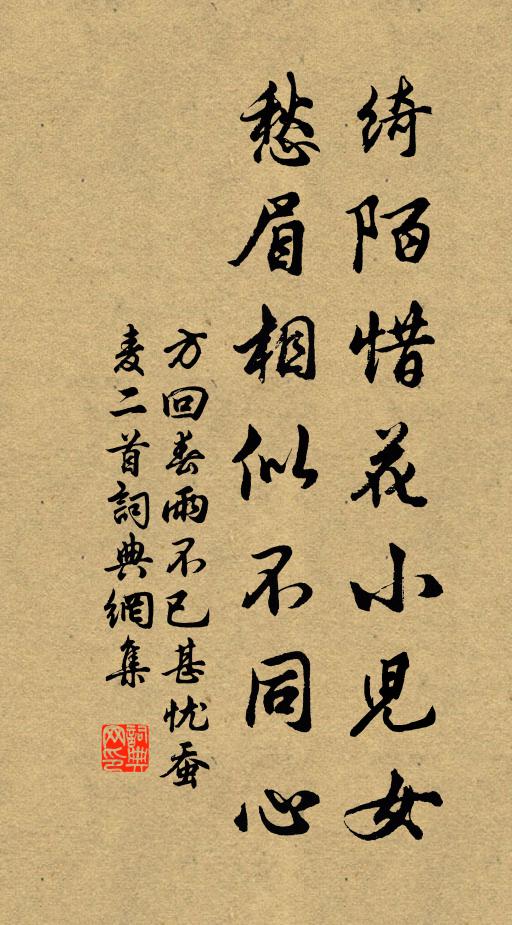 绮陌惜花小児女
愁眉相似不同心
方回春雨不已甚忧蚕
麦二首詞典網集
詞典
网印